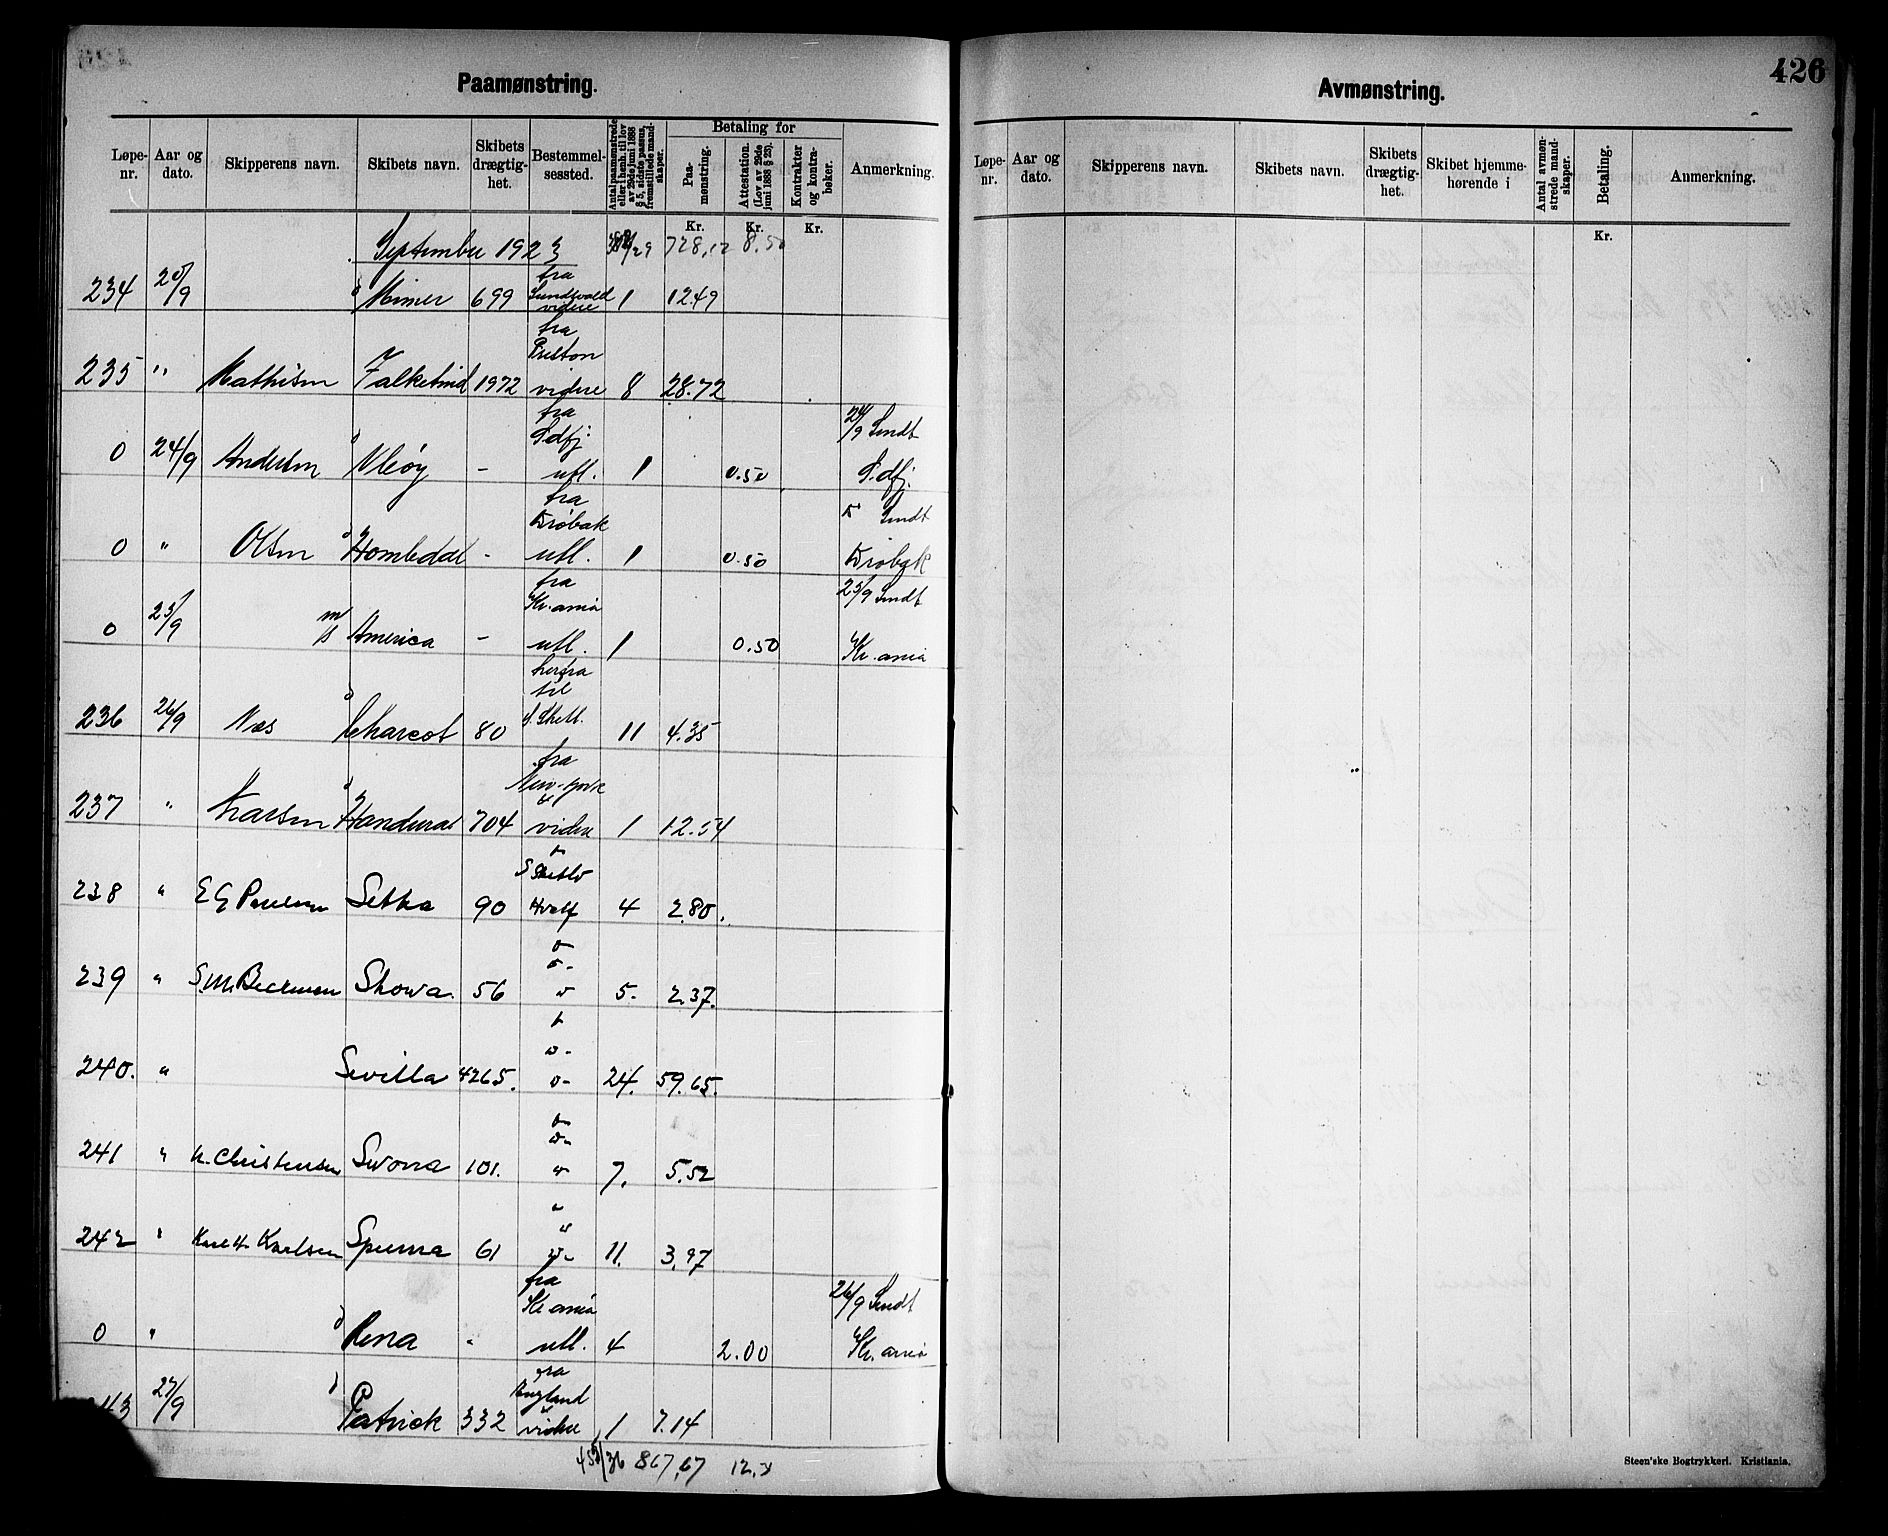 Paamønstring.
Løpe-nr.
Aar og dato.
Skipperens navn.
Skibets navn.
Skibets drægtighet.
Bestemmelsessted.
Antal paamønstrede eller i henh. til lov av 29de juni 1888 § 5, sidste passus, fremstillede mandskaper.
Betaling for
Paamønstring.
Attestation. (Lov av 29de juni 1888 § 25).
Kontrakter og kontrabøker.
Anmerkning.
Kr. Kr. Kr.
September 1923 /29 728,12 8.50
234 20/9 Mimer 699 fra Sundsvald videre 1 12.49
235 " Mathisen Falketind 1972 fra videre 8 28.72
0 24/9 Andersen - fra Sdfj. utl. 1 0.50 24/9 Sendt Sdfj.
0 " Olsen - fra Drøbak utl. 1 0.50 Sendt Drøbak
0 23/9 m/s America - fra Kr.ania utl. 1 0.50 23/9 Sendt Kr.ania
236 26/9 Næs Charcot 80 herfra til S. Shetl. 11 4.35
237 " Larsen Honduras 704 fra New-York videre 1 12.54
238 " E G Paulsen Setka 90 Hvalf 4 2.80.
239 " Skowa. 56 " 5. 2.37.
240. " Sevilla 4265. " 24. 59.65.
241 " N. Christensen Swona 101. " 7. 5.52
242 " Karl H Karlsen Spuma 61 " 11. 3.97
0 " Rena " fra Kr.ania utl. 4 2.00 26/9 Sendt Kr.ania
43 27/9 Patrick 332 fra England videre 1 7.14
/36 867,67
Avmønstring.
426
Løpe-nr.
Aar og dato.
Skipperens navn.
Skibets navn.
Skibets drægtighet.
Skibet hjemmehørende i
Antal avmønstrede mandskaper.
Betaling.
Anmerkning.
Kr.
Steen'ske Bogtrykkeri. Kristiania.